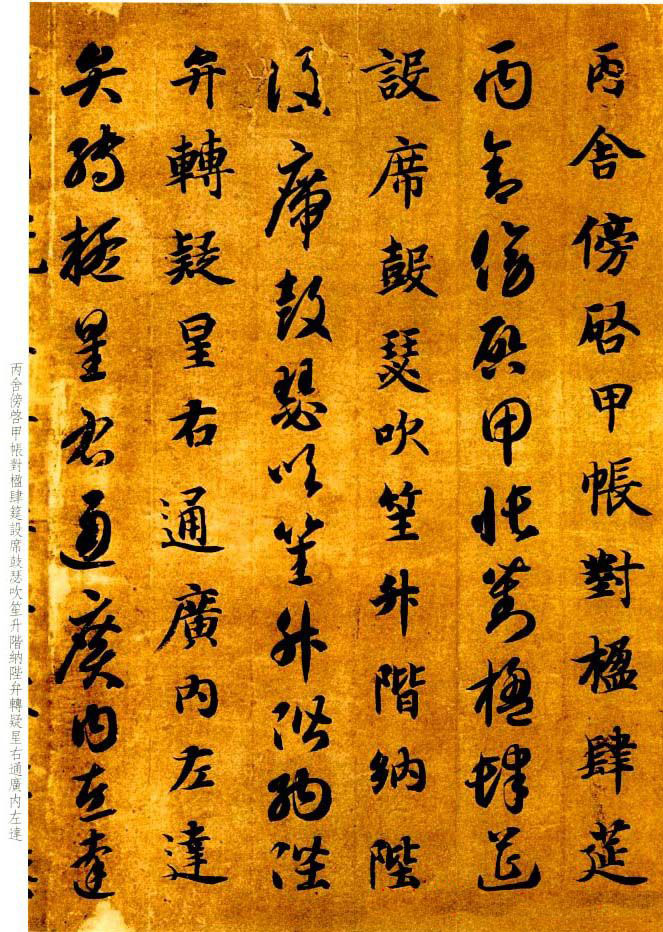 丙舍傍啓甲帳對楹肆筵
丙舍傍啓甲帳對楹肆筵
設席鼓瑟吹笙升階納陛
設席鼓瑟吹笙升階納陛
弁轉疑星右通廣内左達
弁轉疑星右通廣内左達
丙舍傍啓甲帳對楹肆筵設席鼓瑟吹笙升階納陛弁轉疑星右通廣内左達